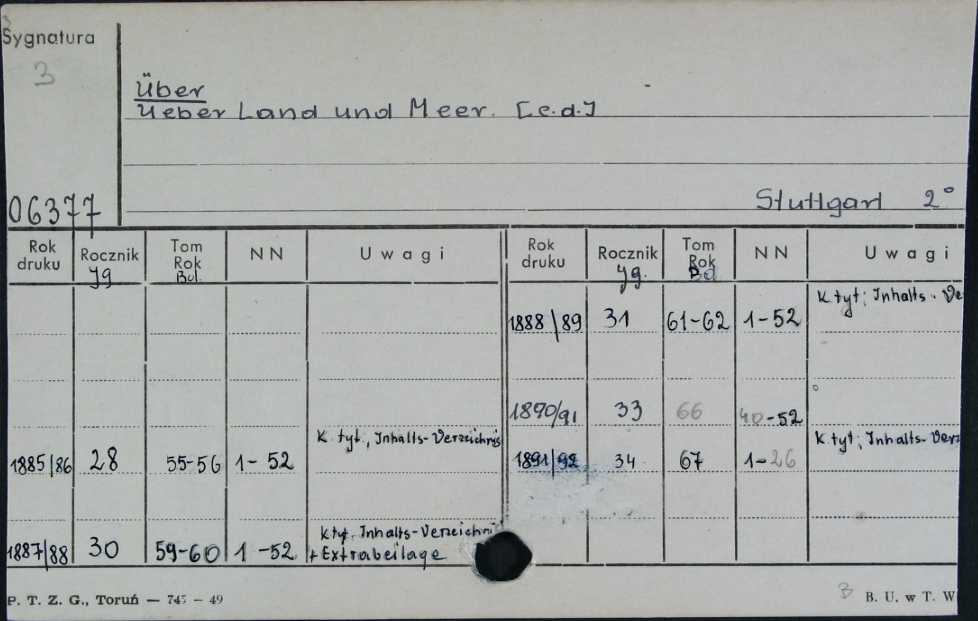 Sygnatura
3
Über
Ueber Land und Meer. [c.d.]
06377
Stuttgart 2°
Rok druku Rocznik Jg Tom Rok Bd. NN Uwagi
Rok druku Rocznik Jg. Tom Rok Bd NN Uwagi
K tyt; Inhalts-Ve
1888/89 31 61-62 1-52
1890/91 33 66 40-52
K tyt., Inhalts-Verzeichnis
1885/86 28 55-56 1-52
K tyt; Inhalts-Verz
1891/92 34 67 1-26
K tyt. Inhalts-Verzeichni
1887/88 30 59-60 1-52 + Extrabeilage
P. T. Z. G., Toruń — 745 — 49
3 B. U. w T. W